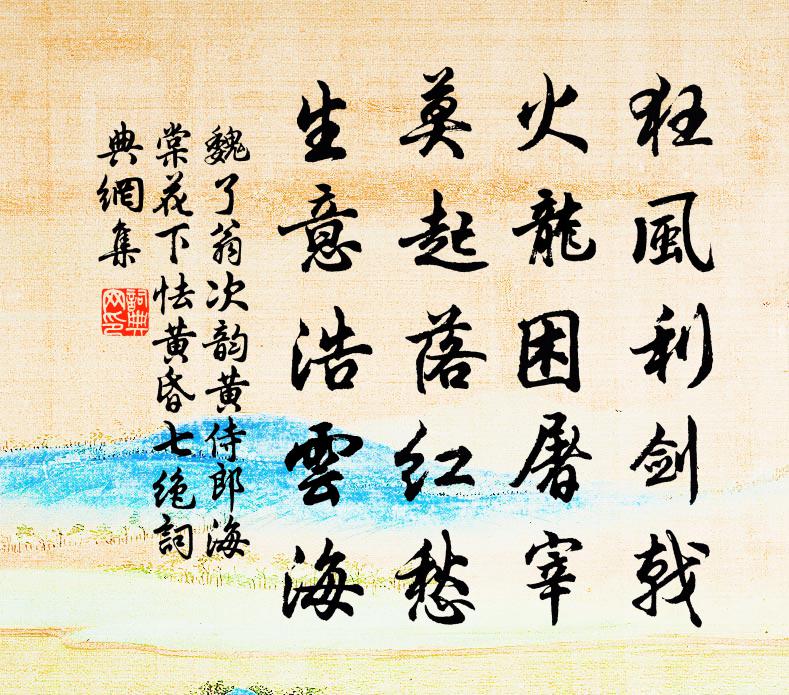 狂風利劍戟
火龍困屠宰
莫起落紅愁
生意浩雲海
魏了翁次韵黄侍郎海
棠花下怯黄昏七絶詞
典網集
詞典網印